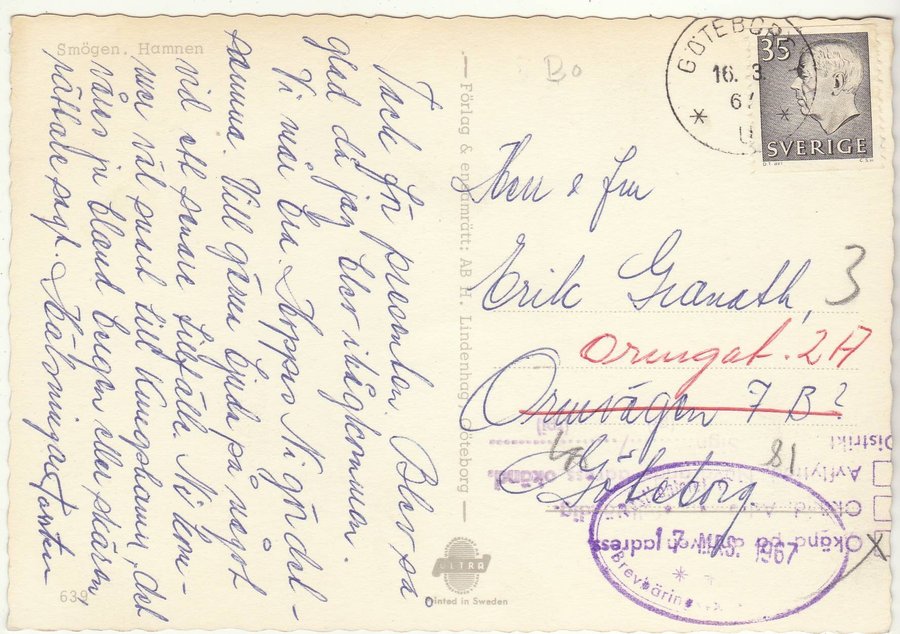 Smögen. Hamnen
Tack för presenten. Blev så
glad då jag blev ihågkommen.
Vi mår bra. Hoppas Ni gör det-
samma. Vill gärna bjuda på något
vid ett senare tillfälle. Ni kom-
mer väl snart till Kungshamn, det
våras ju bland bergen eller skären
rättare sagt. Hälsningar
639
Förlag & ensamrätt: AB H. Lindenhag, Göteborg
ULTRA
Printed in Sweden
Bo
GÖTEBORG
16. 3
67
35
SVERIGE
Herr & fru
Erik Granath,
3
Ormgat. 2A
Ormvägen 7 B ?
Göteborg
81
Distrikt
Avflytt
Okänd på angiven adress
17. MRS. 1967
Brevbärin